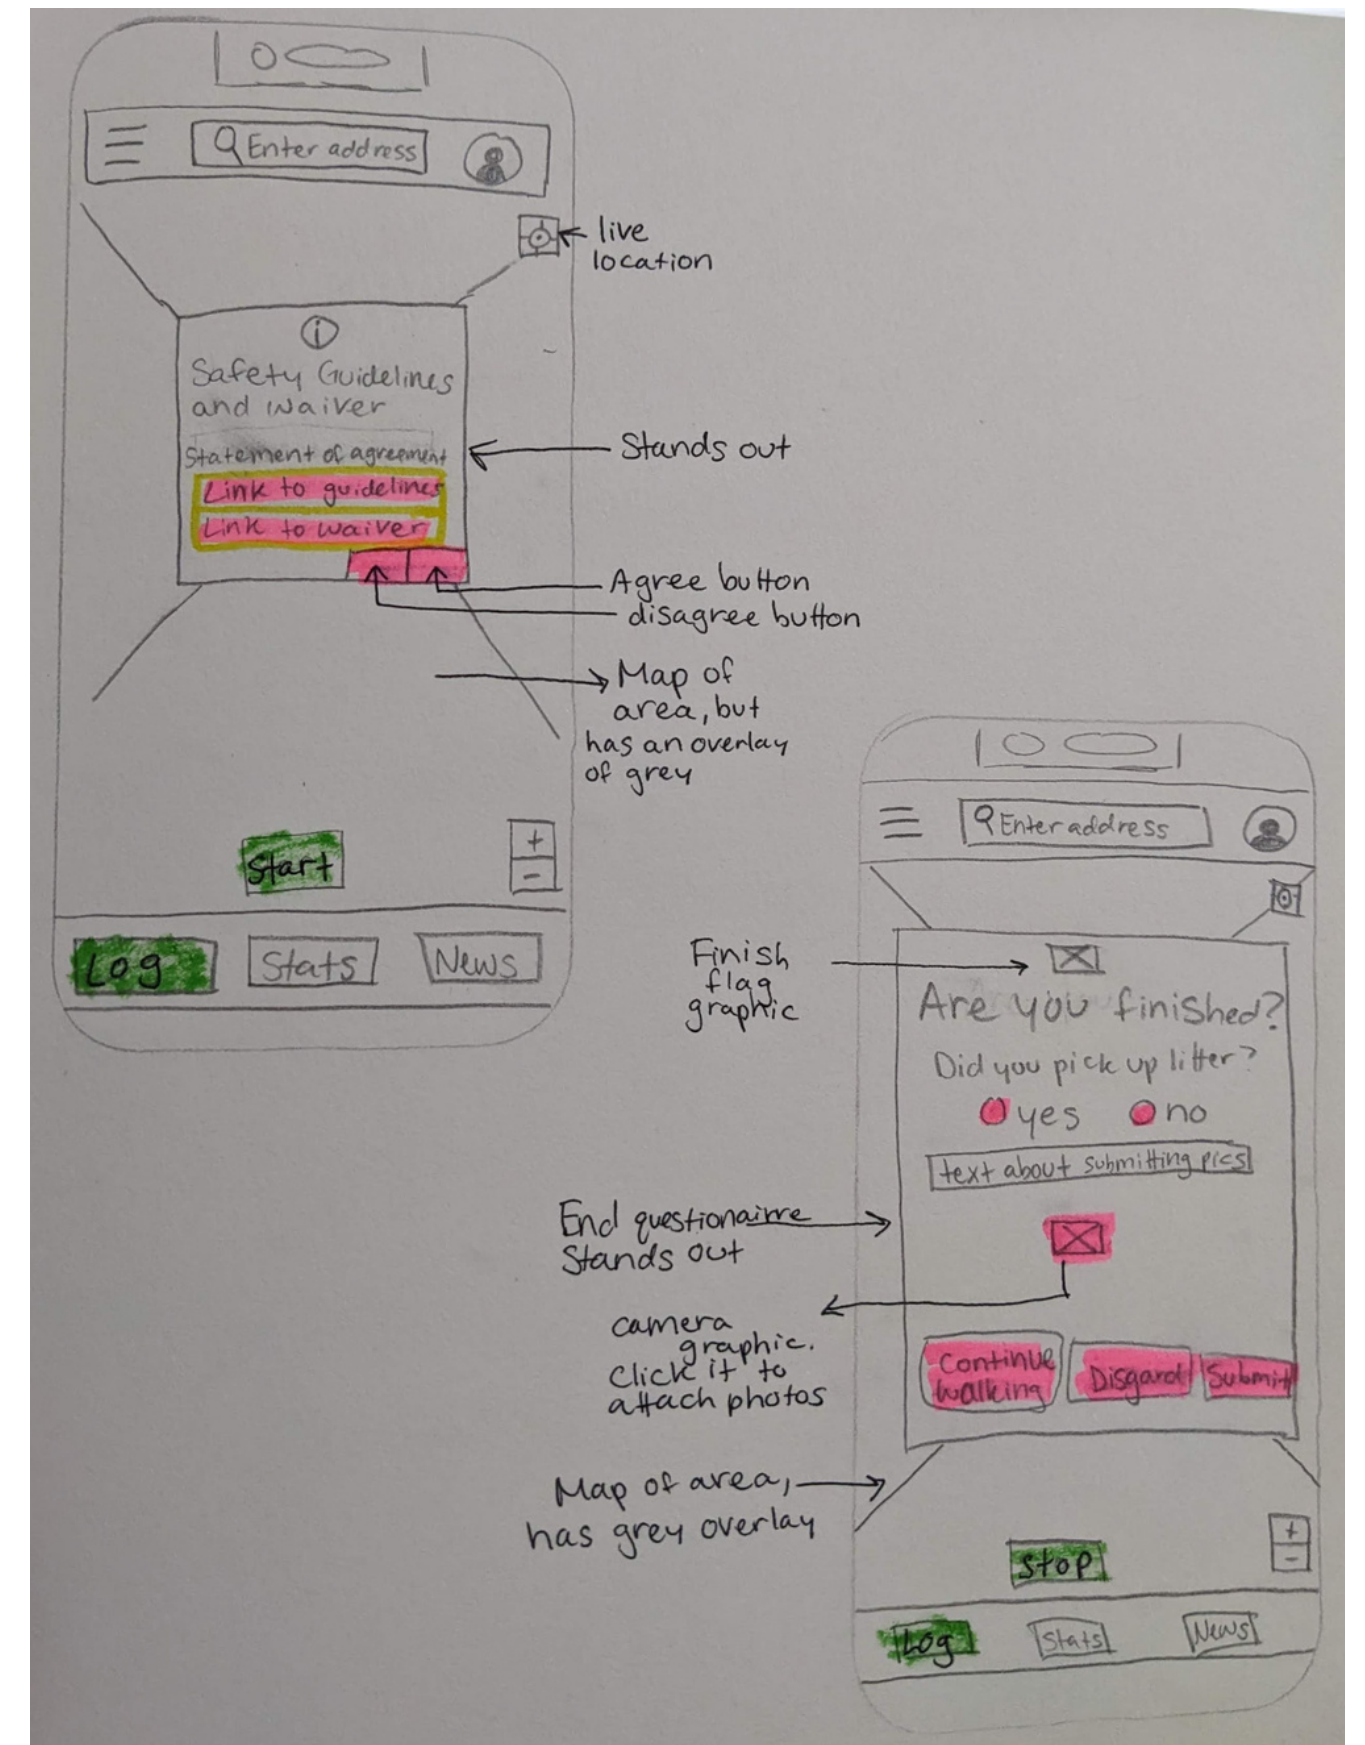 Enter address
live
location
i
Safety Guidelines
and Waiver
Statement of agreement
Link to guidelines
Link to waiver
Stands out
Agree button
disagree button
Map of
area, but
has an overlay
of grey
Start
+
-
Log
Stats
News
Enter address
Finish
flag
graphic
Are you finished?
Did you pick up litter?
yes
no
text about submitting pics
End questionairre
Stands out
camera
graphic.
Click it to
attach photos
Continue
walking
Disgard
Submit
Map of area,
has grey overlay
Stop
+
-
Log
Stats
News